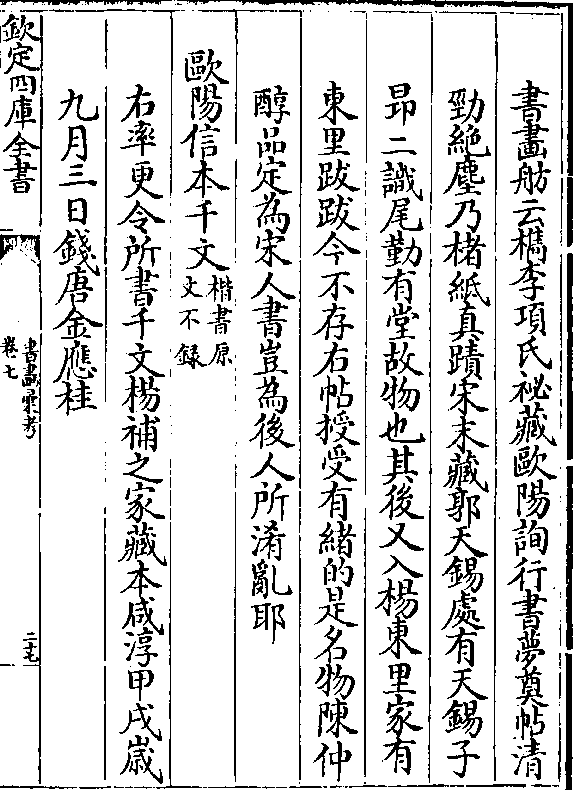 書畫舫云檇李項氏祕藏歐陽詢行書夢奠帖清
勁絶塵乃楮紙真蹟宋末藏郭天錫處有天錫子
昻二識尾勤有堂故物也其後又入楊東里家有
東里跋跋今不存右帖授受有緒的是名物陳仲
醇品定為宋人書豈為後人所淆亂耶
歐陽信本千文楷書原文不錄
右率更令所書千文楊補之家藏本咸淳甲戌嵗
九月三日錢唐金應桂
欽定四庫全書
書畫彚考
卷七
二十七